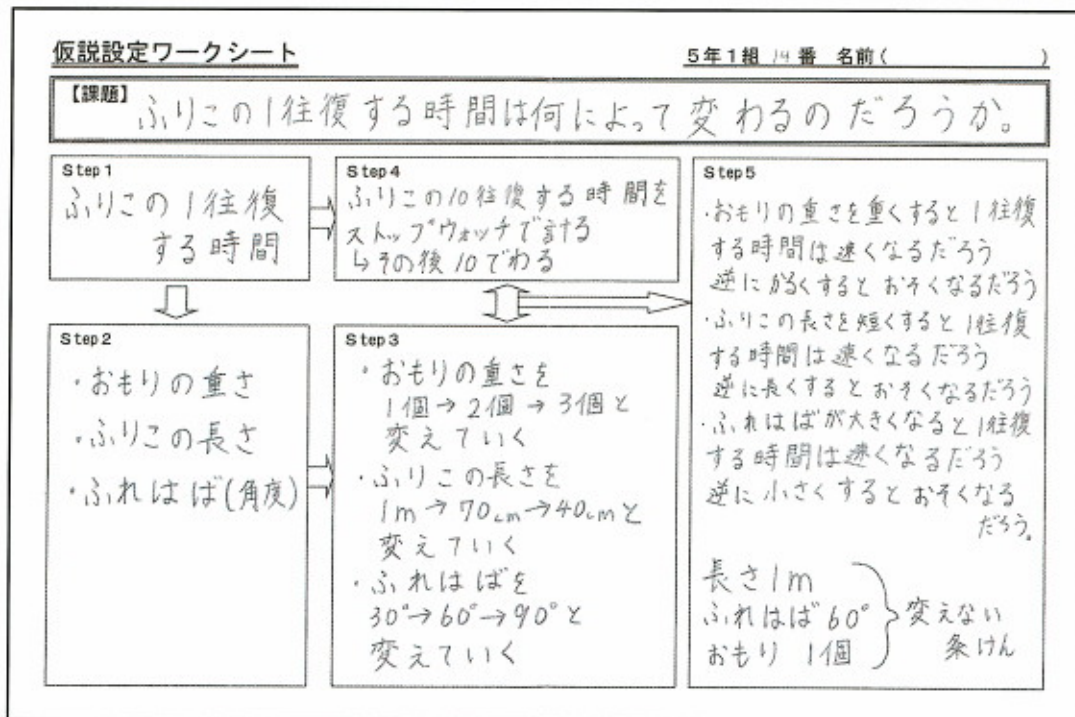 仮説設定ワークシート
5年1組 14番 名前( )
【課題】
ふりこの1往復する時間は何によって変わるのだろうか。
Step1
ふりこの1往復
する時間
Step4
ふりこの10往復する時間を
ストップウォッチで計る
↳その後10でわる
Step2
・おもりの重さ
・ふりこの長さ
・ふれはば(角度)
Step3
・おもりの重さを
1個→2個→3個と
変えていく
・ふりこの長さを
1m→70cm→40cmと
変えていく
・ふれはばを
30°→60°→90°と
変えていく
Step5
・おもりの重さを重くすると1往復
する時間は速くなるだろう
逆にかるくするとおそくなるだろう
・ふりこの長さを短くすると1往復
する時間は速くなるだろう
逆に長くするとおそくなるだろう
・ふれはばが大きくなると1往復
する時間は速くなるだろう
逆に小さくするとおそくなる
だろう。
長さ1m
ふれはば60°
おもり 1個
変えない
条けん